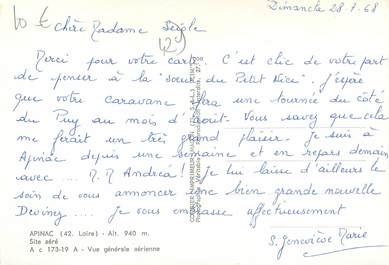 Dimanche 28-7-68
Chère Madame Seigle
Merci pour votre carte. C'est chic de votre part
de penser à la "soeur du Petit Nice". J'espère
que votre caravane fera une tournée du côté
du Puy au mois d'août. Vous savez que cela
me ferait un très grand plaisir. Je suis à
Apinac depuis une semaine et en repars demain
avec .... Andréa! Je lui laisse d'ailleurs le
soin de vous annoncer une bien grande nouvelle
Devinez .... Je vous embrasse affectueusement
S. Geneviève Marie
APINAC (42. Loire) - Alt. 940 m.
Site aéré
A c 173-19 A - Vue générale aérienne